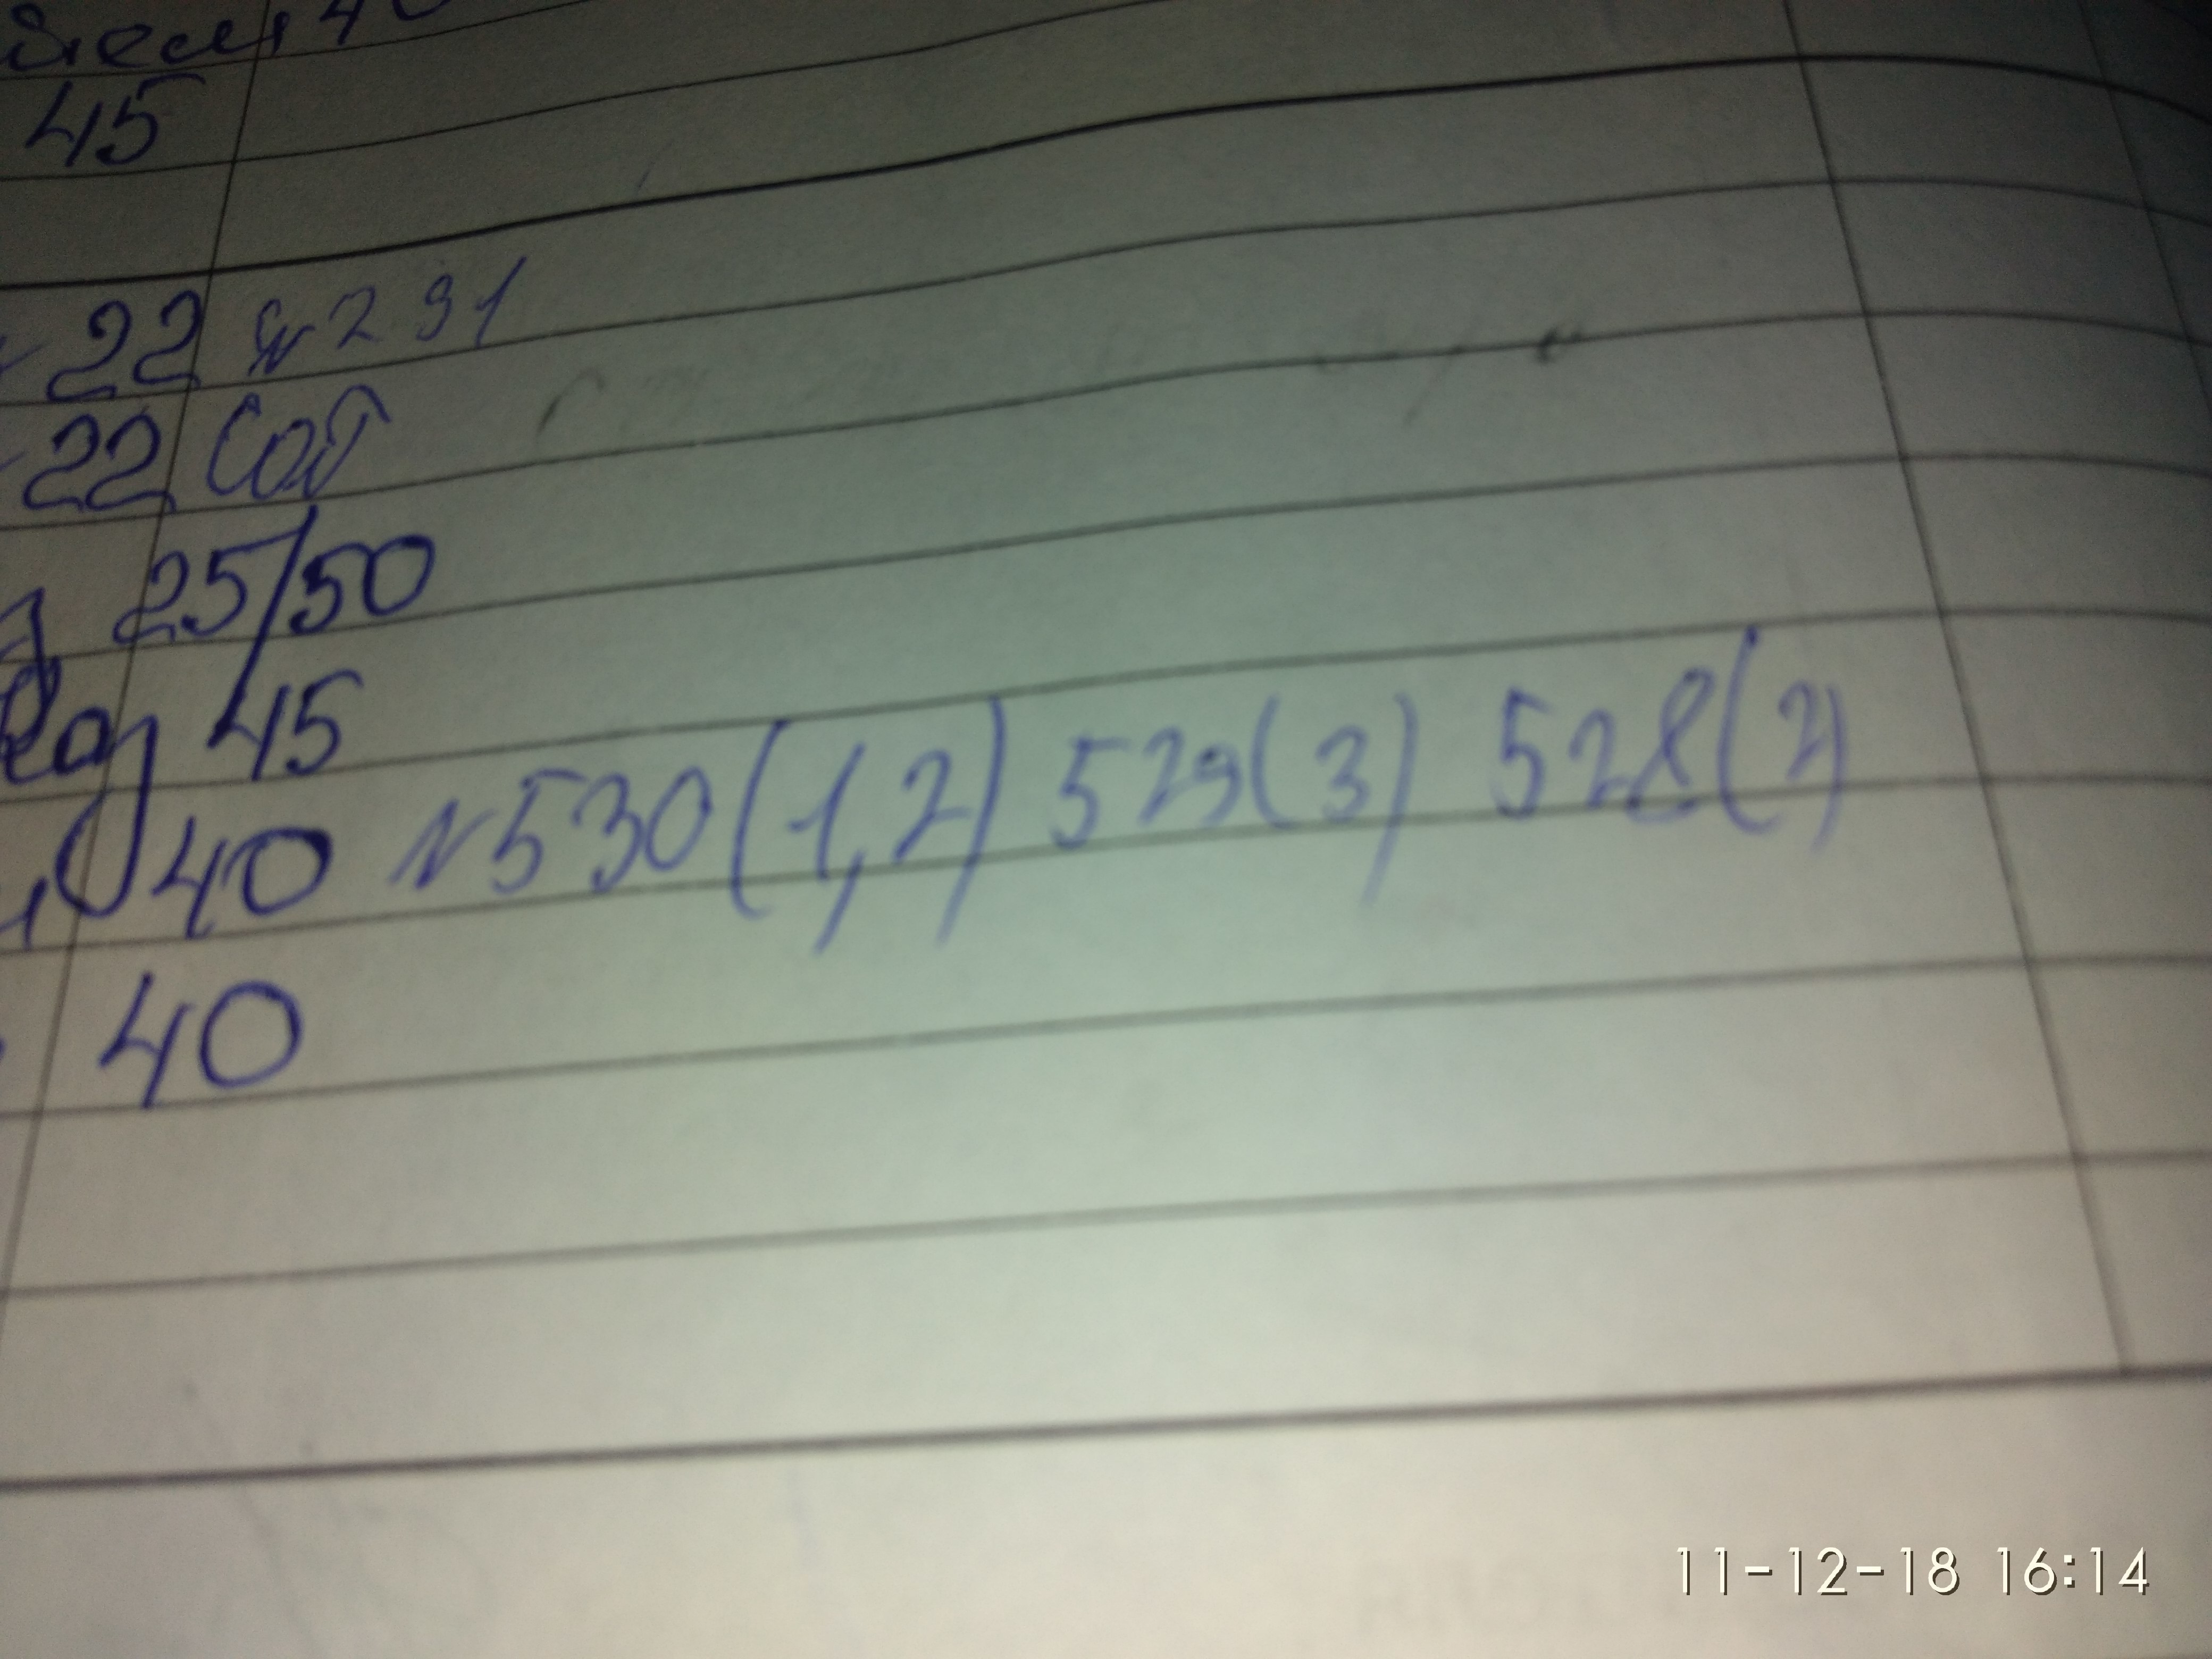 45
22 №291
22 Соч
25/50
45
40 №530(1,2) 529(3) 528(2)
40
11-12-18 16:14